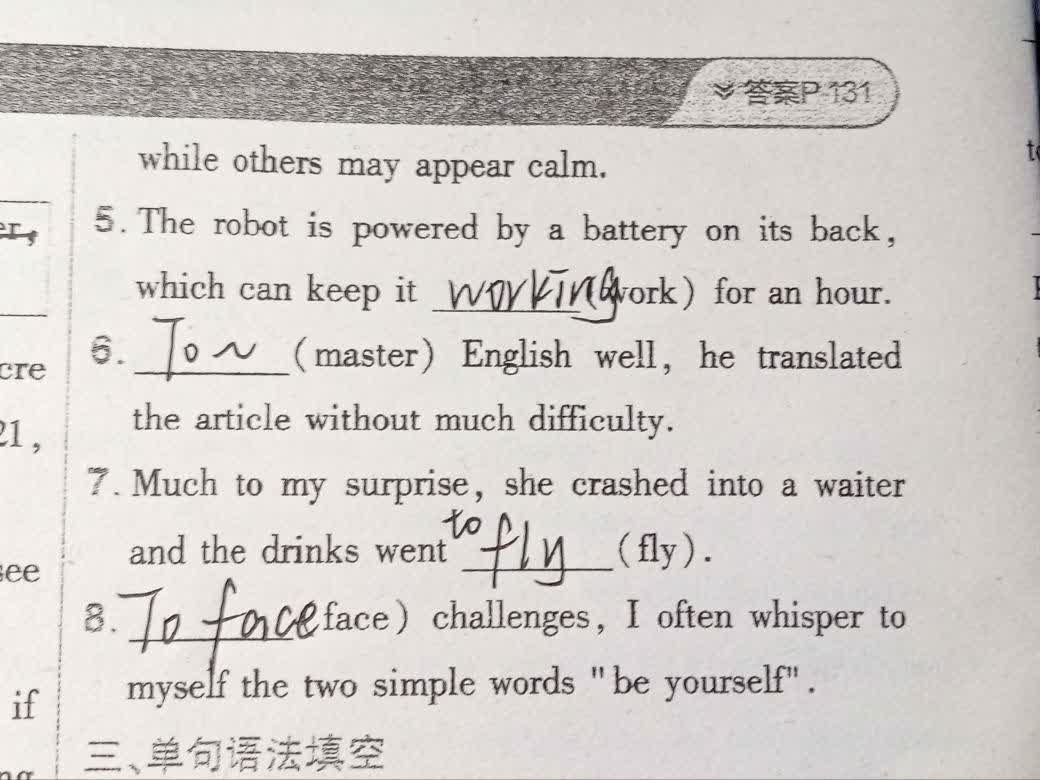 答案P-131
while others may appear calm.
er,
5. The robot is powered by a battery on its back,
which can keep it working work) for an hour.
6. To ~ (master) English well, he translated
cre
the article without much difficulty.
21,
7. Much to my surprise, she crashed into a waiter
and the drinks went to fly (fly).
see
8. To face face) challenges, I often whisper to
myself the two simple words "be yourself".
if
三、单句语法填空